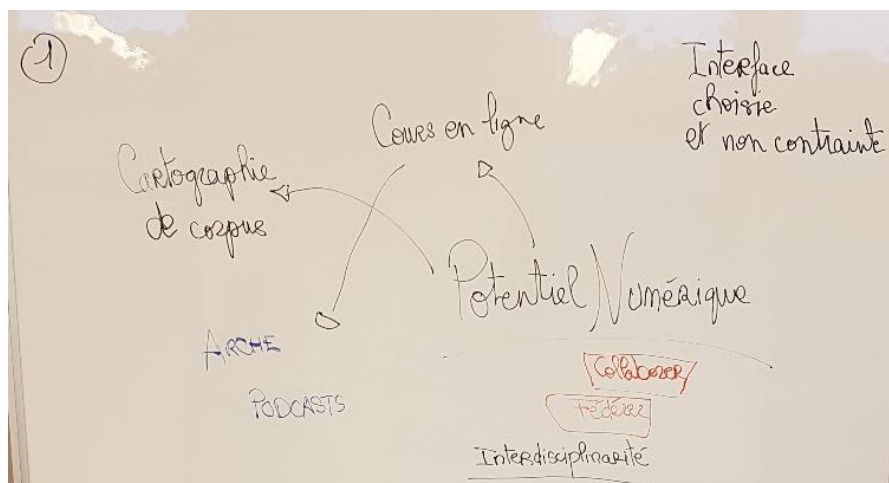 1
Interface
choisie
et non contrainte
Cours en ligne
Cartographie
de corpus
Potentiel Numérique
ARCHE
PODCASTS
Collaborer
Fédérer
Interdisciplinarité